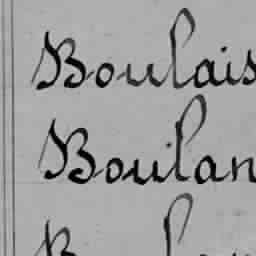 Boulais
Boulan